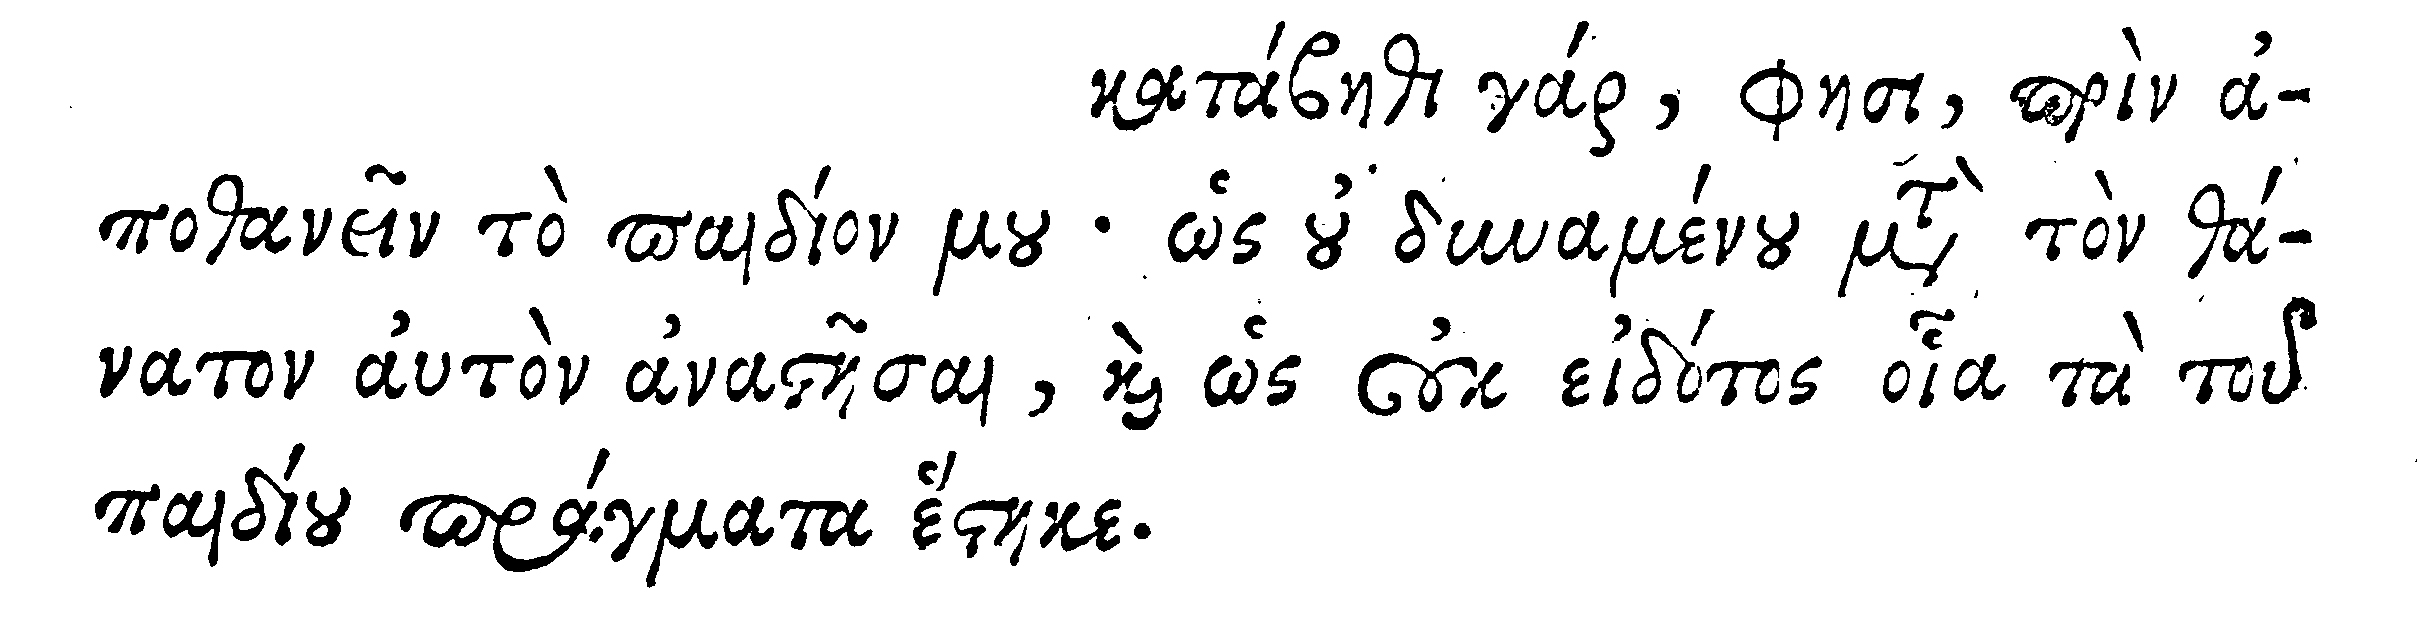 κατάβηθι γάρ, φησι, πρὶν ἀ-
ποθανεῖν τὸ παιδίον μου · ὡς οὐ δυναμένου μετὰ τὸν θά-
νατον ἀυτὸν ἀναστῆσαι, καὶ ὡς οὐκ εἰδότος οἷα τὰ τοῦ
παιδίου πράγματα ἕστηκε.